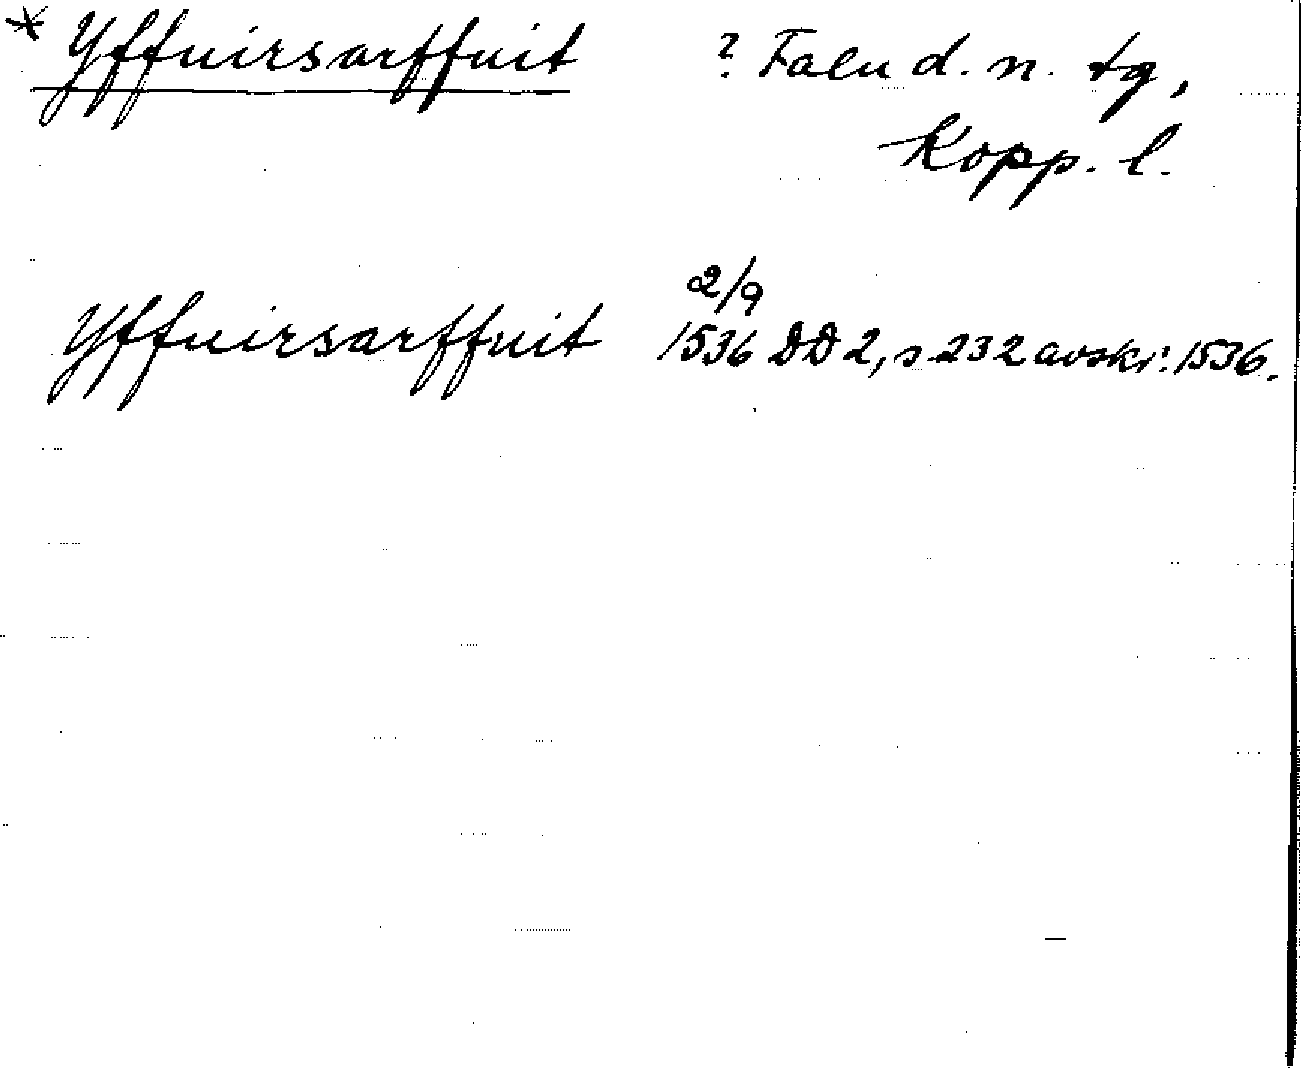 * Yffuirsarffuit ? Falu d. n. tg,
Kopp. l.
2/9
Yffuirsarffuit 1536 DD 2, s 232 avskr. 1536.